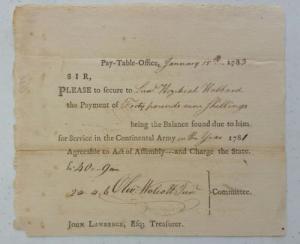 Pay-Table-Office, January 15th 1783
SIR,
PLEASE to secure to Hezekiah Hubbard
the Payment of Forty pounds nine Shillings
being the Balance found due to him
for Service in the Continental Army in the Year 1781
Agreeable to Act of Assembly—and Charge the State.
£40..9..
Olivr Wolcott Junr } Committee.
JOHN LAWRENCE, Esq. Treasurer.